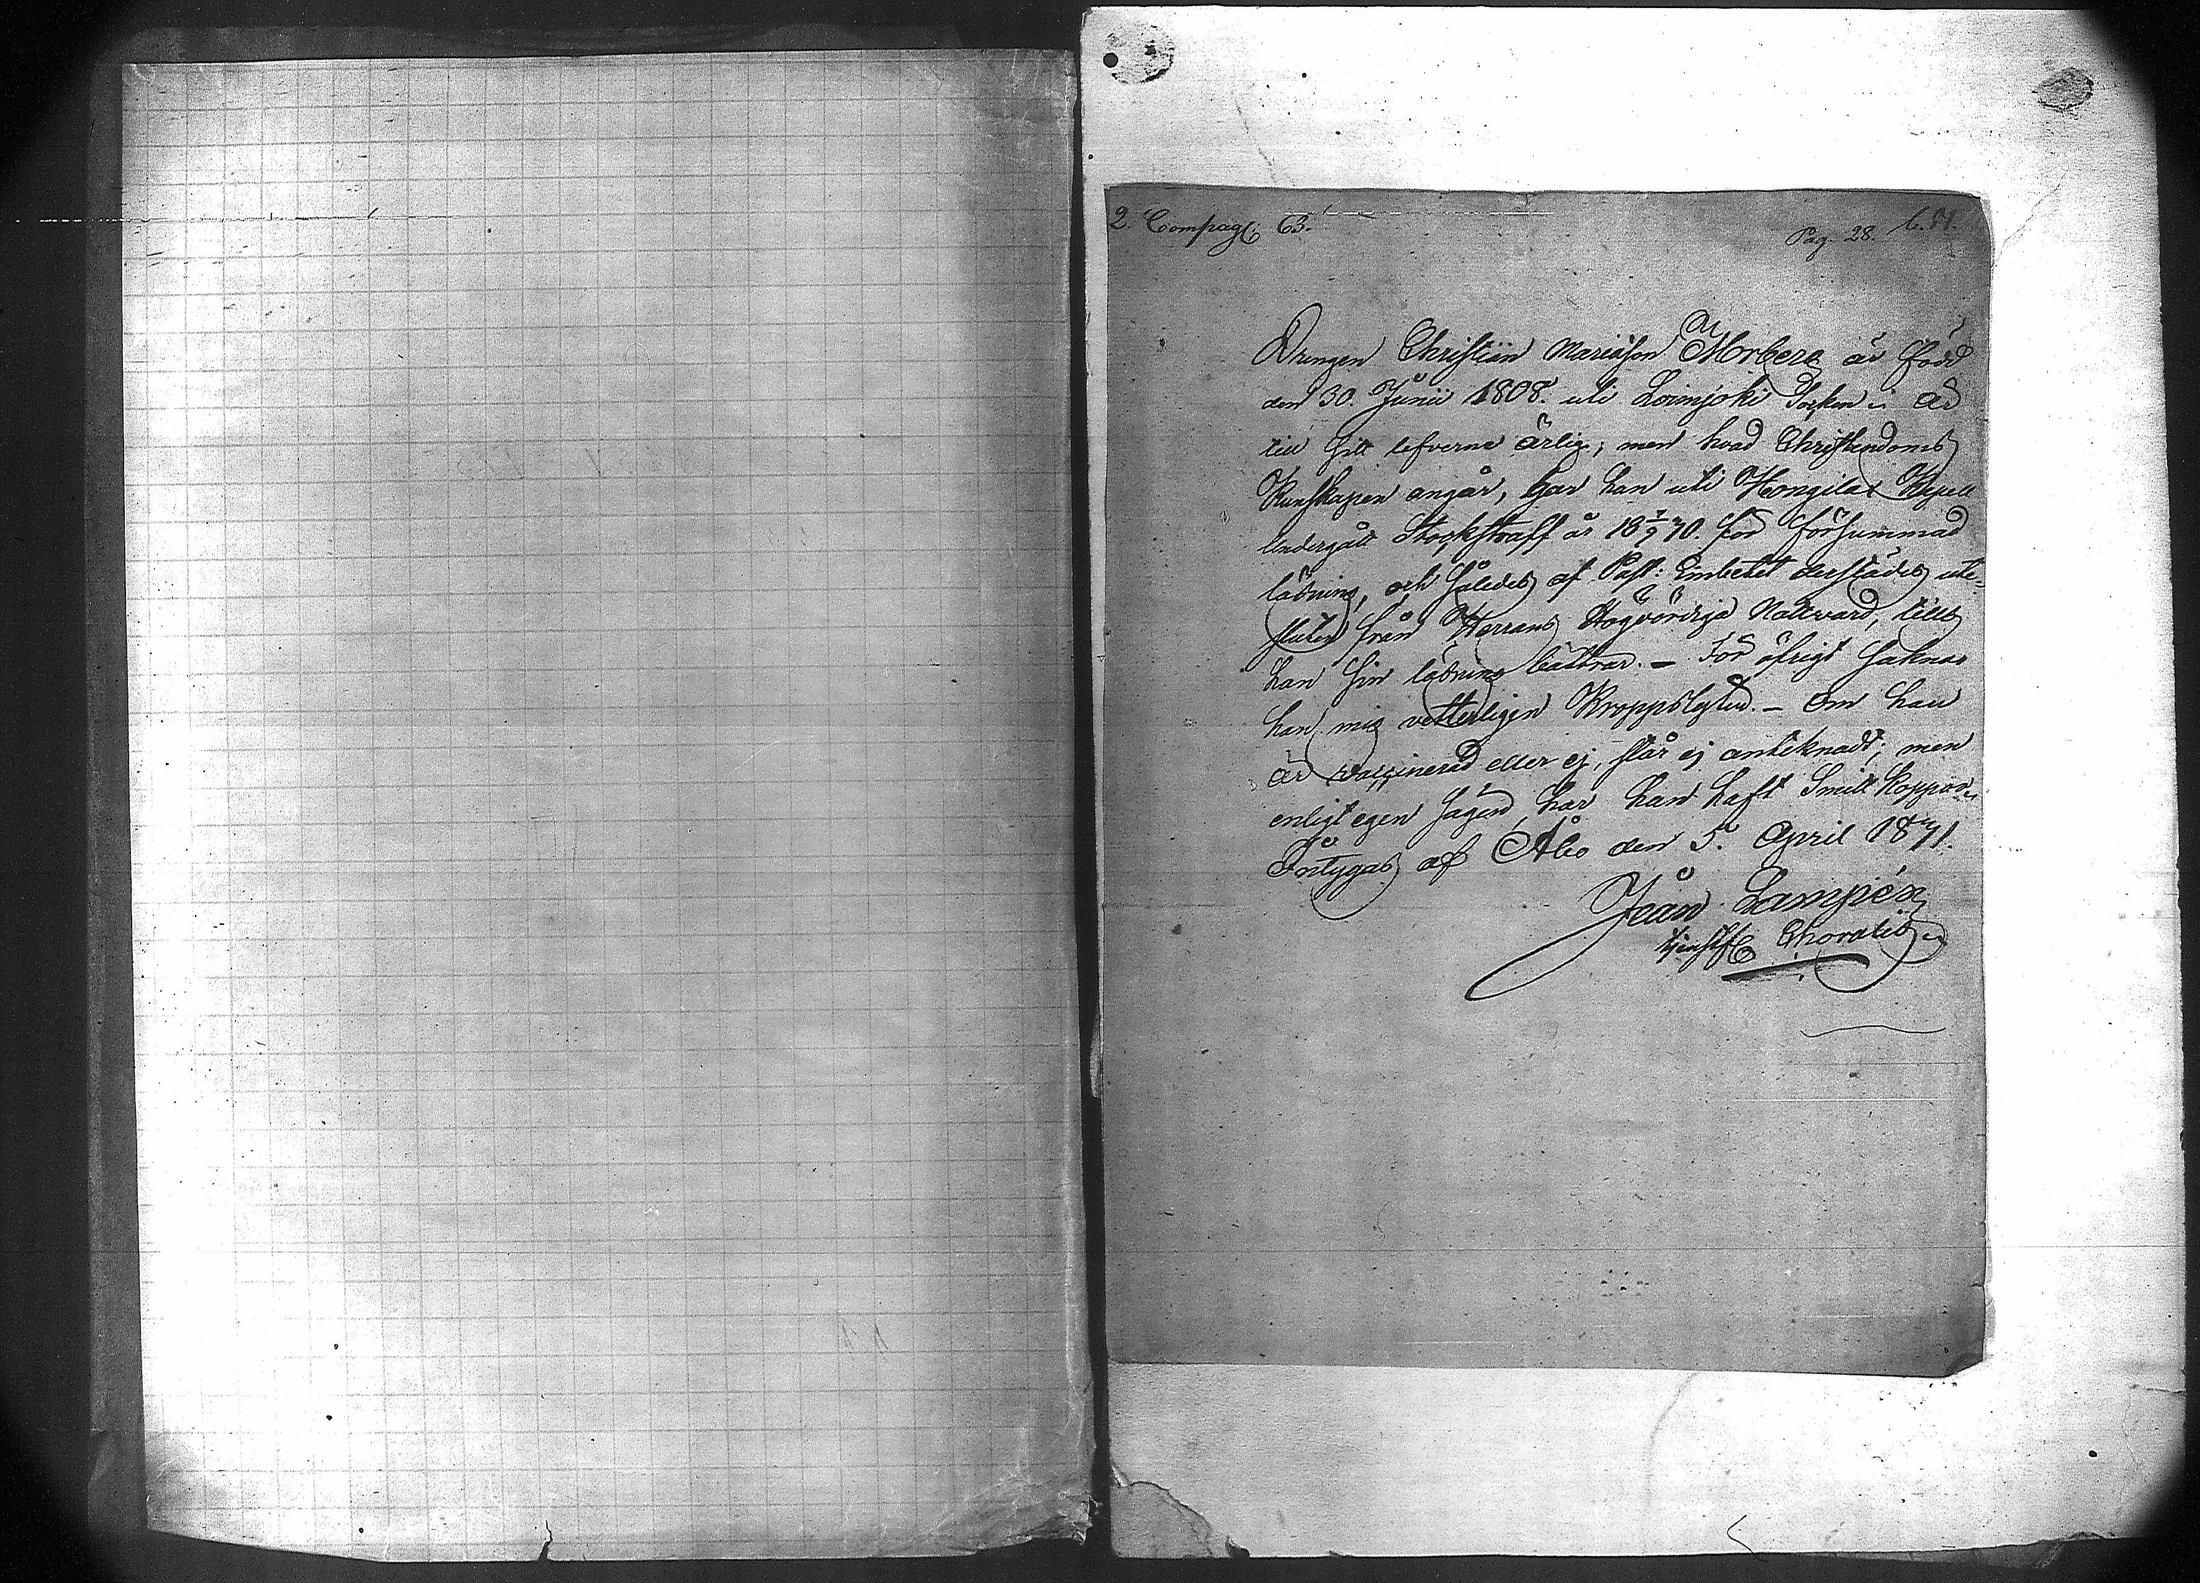 2. Compag: 63.
Pag. 28.
Drängen Christian Mariæson Morberg är född
den 30. Junii 1808. uti Loimjoki Socken är
till sitt lefverne ärlig; men hvad Christendoms
Kunskapen angår, har han uti Hongilax Kapell
Undergått Stockstraff år 18 7/9 70. för försummad
läsning, och således af Past: Embetet derstädes ute-
sluten från Herrans Högvördige Nattvard, tills
han sin läsning bättrar. — För öfrigt saknar
han mig vetterligen Kroppslyten. — Om han
är vaccinerad eller ej, står ej anteknadt; men
enligt egen sägen, har han haft Smitt koppor.
Intygas af Åbo den 5. April 1871.
Jean Lampén
tjenstf Choralis